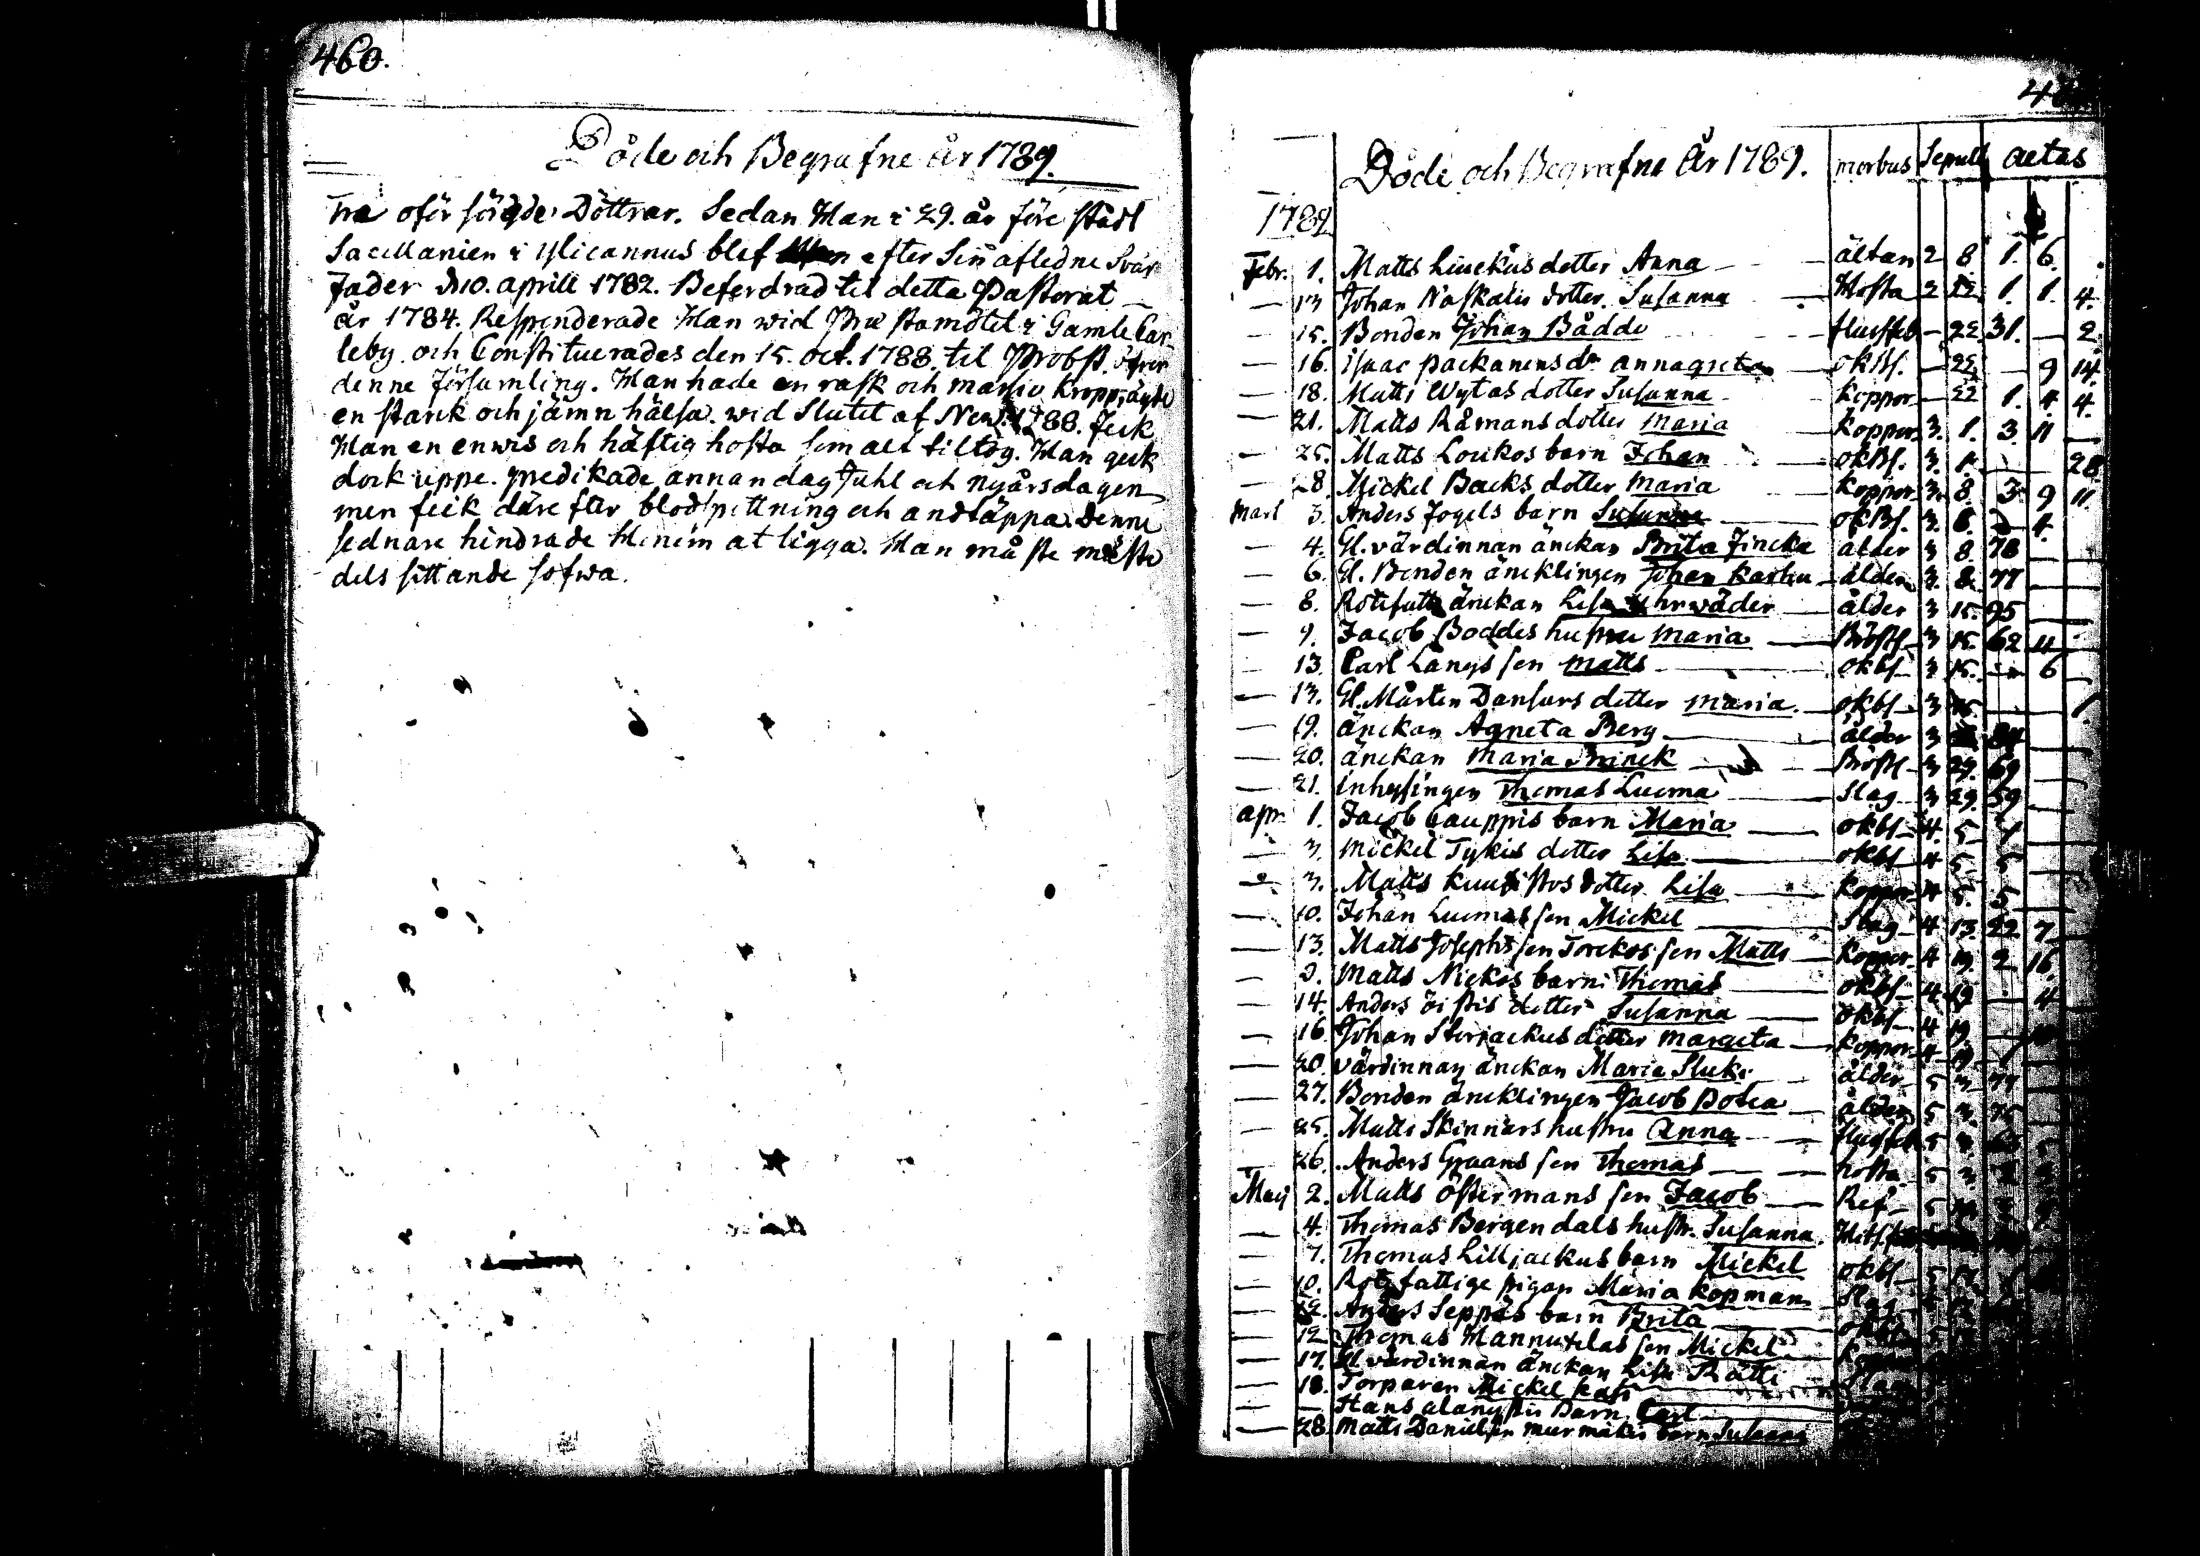 460.
Döde och Begrafne År 1789.
Tre oförsörgde Döttrar. Sedan Han i 29. år före stådt
Sacellanien i Ylicannus blef efter Sin aflednе Svär
fader d. 10. aprill 1782. Beferdrad til detta Pastorat
år 1784. Respenderade Han wid Prestamötet i Gamle Car
leby och Constituerades den 15. oct. 1788 til Probst öfver
denne församling. Han hade en rask och massiv kropp, ägde
en stark och jämn hälsa. wid Slutet af Nov. 1788. feck
Han en enwis och häftig hosta som alt tiltog. Han geck
dock uppe. predikade annan dag Juhl och nyårsdagen
men feck därefter blodspittning och andtäppa. Denne
sednare hindrade Honom at ligga. Han måste mäste
dels sittande sofwa.
Döde och Begrafne År 1789. morbus Sepult aetas
1789
Febr. 1. Matts Linekus dotter Anna — ältan 2 8 1. 6.
— 13 Johan Naskalis dotter Susanna — Hosta 2 22 1. 1. 4.
— 15. Bonden Johan Bådde — flussfeb — 22 31. — 2
— 16. Isaac packanens dr annagreta — okBs. — 22 — 9 14.
— 18. Matts Wytas dotter Susanna — koppor — 22 1. 4. 4.
— 21. Matts Råmans dotter Maria — koppor 3. 1. 3. 11 —
— 25. Matts Loukos barn Johan — okBs. 3. 1. — 28
— 28. Mickel Backs dotter Maria — koppor 3. 8. 3 9 11.
Mart 3. Anders Jogels barn Susanna — okBs. 3. 8. 4.
— 4. Gl. värdinnan änckan Brita Fincke — ålder 3 8 78
— 6. Gl. Bonden äncklingen Johan Karhu — ålder 3. 8. 77
— 8. Rotefatt. änckan Lisa — ålder 3 15. 95
— 9. Jacob Boddes hustru Maria — Bröst 3 15. 62 11
— 13. Carl Längs son Matts — okbs 3 15. — 6
— 13. Gl. Mårten Dansars dotter Maria — okbs 3 15. — 1
— 19. änckan Agneta Berg — ålder 3 84
— 20. änckan Maria Brinck — Bröst 3 29. 69
— 21. inhysingen Thomas Luoma — Slag 3 29. 59
apr. 1. Jacob Cauppis barn Maria — okbs 4. 5. 1
— 3. Mickel Tykis dotter Lisa — okbs 4 5 5
— 3. Matts Kuusistos dotter Lisa — koppor 4 5. 5
— 10. Johan Luomas son Mickel — Slag 4 13. 22 7
— 13. Matts Josephsson Torckos son Matts — koppor 4 19. 2 16
— Matts Nickos barn Thomas — okbs 4 19 — 4
— 14. Anders öistis dotter Susanna — okbs 4 19.
— 16. Johan Storjackus dotter Margeta — koppor 4 19 1
— 20. värdinnan änckan Maria Sluk — ålder 5 3 77
— 27. Bonden äncklingen Jacob Potca — ålder 5 3. 75
— 25. Matts Skinnars hustru Anna — flussfeb 5 3
— 26. Anders Graans son Thomas — hosta 5 3.
Maij 2. Matts Östermans son Jacob — Ref
— 4. Thomas Bergendals hustr. Susanna
— 7. Thomas Lilljackus barn Mickel — okbs 5
— 10. Rotefattige pigan Maria Kopman — Slag
— 12. Anders Seppäs barn Brita
— 12 Thomas Mannutilas son Mickel
— 17. Gl. värdinnan änckan Lisa Rätti
— 18. Torparen Mickel
— Hans Barn Carl
— 28. Matts Danielsson barn Susanna